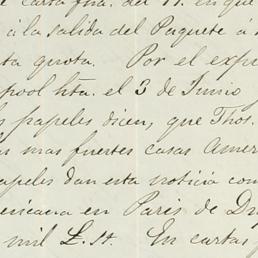 carta fha. del 11. en que
á la salida del Paquete á
ta quota. Por el expr
pool hta. el 3 de Junio
s papeles dicen, que Thos.
as mas fuertes casas Amer
apeles dan esta noticia com
ericana en Paris de D
mil L. St. En cartas